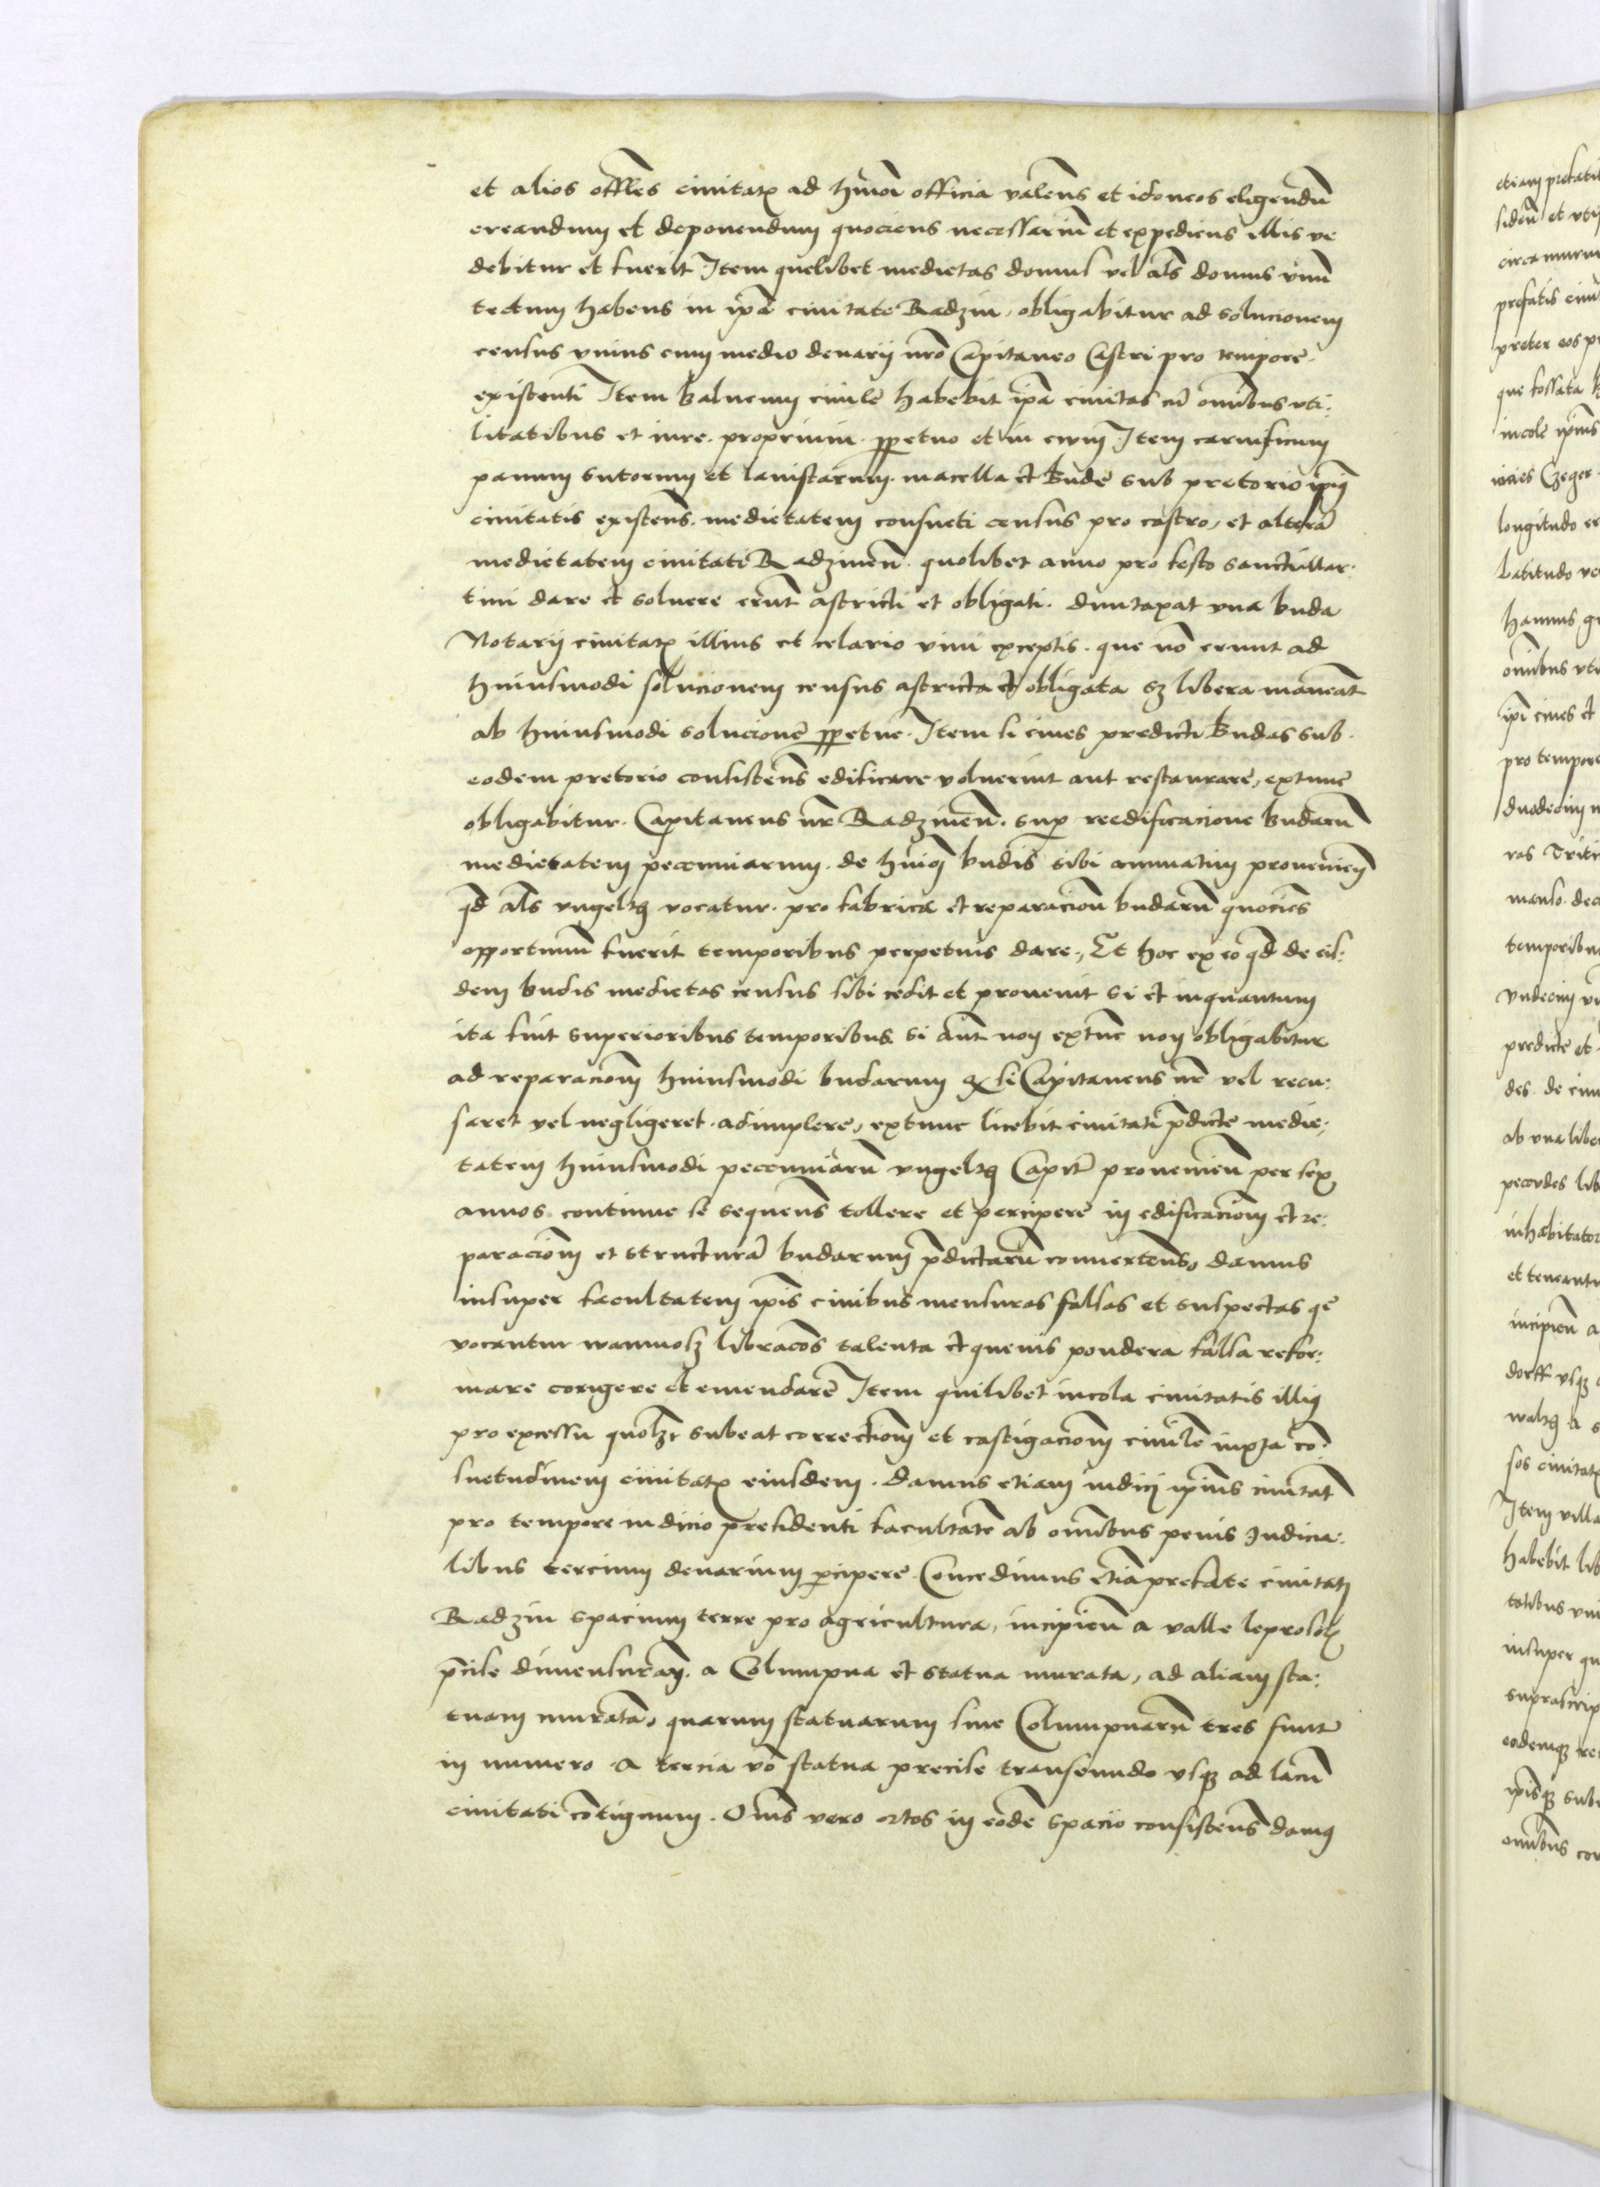 et alios offles ciuitatꝫ ad hmoi officia valens et idoneos eligendū
creandum et deponendum quociens necessariū et expediens illis ve
debitur et fuerit Item quelibet medietas domus vel als domus vnū
tectum habens in ipa ciuitate Radzin, obligabitur ad solucionem
census vnius cum medio denarij nro Capitaneo Castri pro tempore
existenti Item balneum ciuile habebit ipa ciuitas cū omibus vti:
litatibus et iure proprium ꝑpetuo et in ewm Item carnificum
panum sutorum et lanistarum macella et bude sub pretorio ipiꝰ
ciuitatis existens medietatem consueti census pro castro, et alterā
medietatem ciuitati Radzinen quolibet anno pro festo sancti Mar:
tini dare et soluere erūt astricti et obligati. duntaxat vna buda
Notarij ciuitatꝫ illius et celario vini exceptis. que nō erunt ad
huiusmodi solucionem census astricta et obligata sꝫ libera maneāt
ab huiusmodi solucione ꝑpetue. Item si ciues predicti budas sub
eodem pretorio consistens edificare voluerint aut restaurare, extunc
obligabitur. Capitaneus nr Radzinen. suꝑ reedificacione budarū
medietatem pecenniarum. de huiꝰ budis sibi annuatim prouenien
qd als vngeltꝫ vocatur. pro fabrica et reparacion budarū quociēs
opportunū fuerit temporibus perpetuis dare, Et hoc ex eo qd de eis:
dem budis medietas census sibi cedit et prouenit si et inquantum
ita fuit superioribus temporibus si aūt non extūc non obligabitur
ad reparacionem huiusmodi budarum Qꝫ si Capitaneus nr vel recu:
saret vel negligeret adimplere, extunc licebit ciuitati p̄dicte medie:
tatem huiusmodi pecenniarū vngeltꝫ Capit prouenien per sex
annos continue se sequens tollere et percipere in edificacionem et re:
paracionem et structurā budarum p̄dictarū conuertens, damus
insuper facultatem ipis ciuibus mensuras falsas et suspectas qe
vocantur wannolꝫ libracos talenta et queuis pondera falsa refor:
mare corigere et emendare Item quilibet incola ciuitatis illiꝰ
pro excessu quolꝫt subeat correctionem et castigacionem ciuilem iuxta co:
suetudinem ciuitatꝫ eiusdem. damus etiam iudici ipius ciuitatꝫ
pro tempore iudicio presidenti facultate ab omibus penis Iudicia:
libus tercium denarium ꝑcipere. Concedimus etiā prefate ciuitatꝫ
Radzin spacium terre pro agricultura, incipien a valle leprosoꝝ
p̄cise dimensuran. a Columpna et statua murata, ad aliam sta:
tuam muratā, quarum statuarum siue Columpnarū tres sunt
in numero A tercia vō statua precise transeundo vsqꝫ ad lacū
ciuitati cōtignum. Oms vero ortos in eodē spacio consistens damꝰ